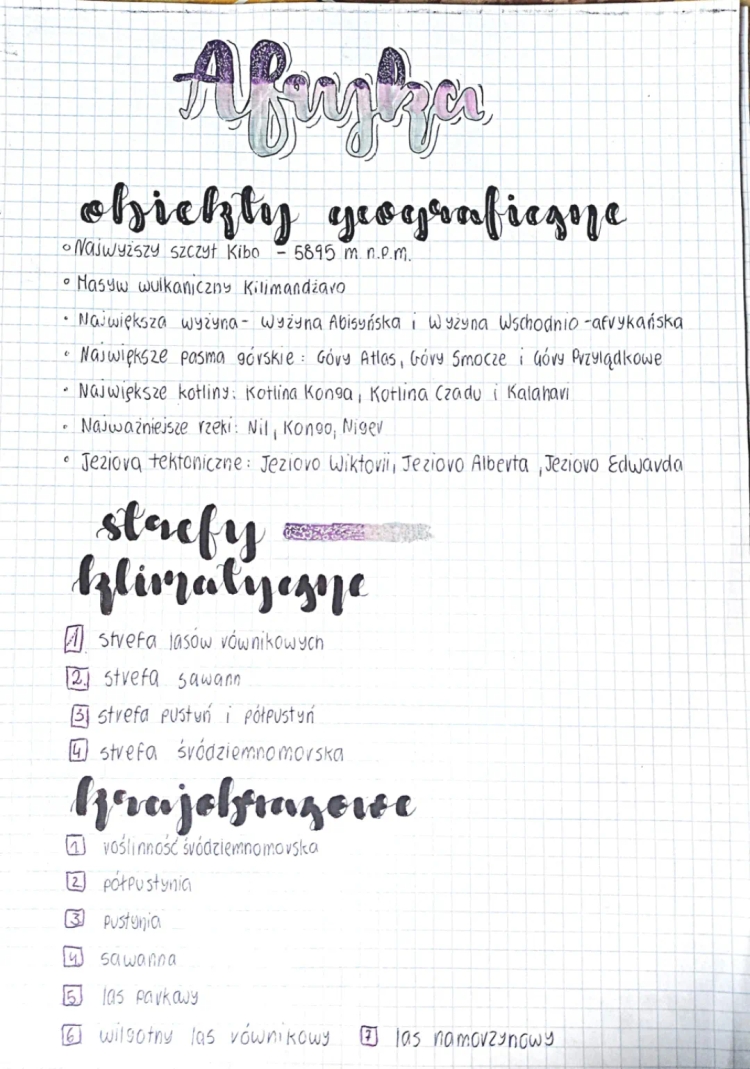 Afryka
obiekty geograficzne
• Najwyższy szczyt Kibo - 5895 m n.p.m.
• Masyw wulkaniczny Kilimandżaro
• Największa wyżyna - Wyżyna Abisyńska i Wyżyna Wschodnio-afrykańska
• Największe pasma górskie: Góry Atlas, Góry Smocze i Góry Przylądkowe
• Największe kotliny: Kotlina Konga, Kotlina Czadu i Kalahari
• Najważniejsze rzeki: Nil, Kongo, Niger
• Jeziora tektoniczne: Jezioro Wiktorii, Jezioro Alberta, Jezioro Edwarda
strefy
klimatyczne
1 strefa lasów równikowych
2. strefa sawann
3 strefa pustuń i półpustyń
4 strefa śródziemnomorska
krajobrazowe
1 roślinność śródziemnomorska
2 półpustynia
3 pustynia
4 sawanna
5 las parkowy
6 wilgotny las równikowy 7 las namorzynowy